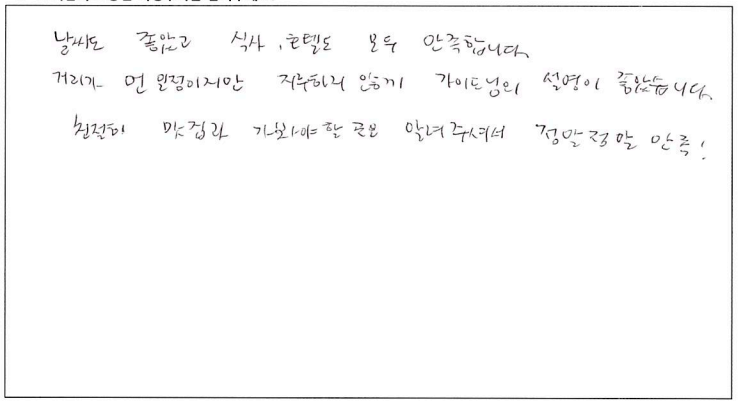 날씨도 좋았고 식사, 호텔도 모두 만족합니다.
거리가 먼 일정이지만 지루하지 않게 가이드님의 설명이 좋았습니다.
친절히 맛집과 가봐야할 곳을 알려주셔서 정말정말 만족!